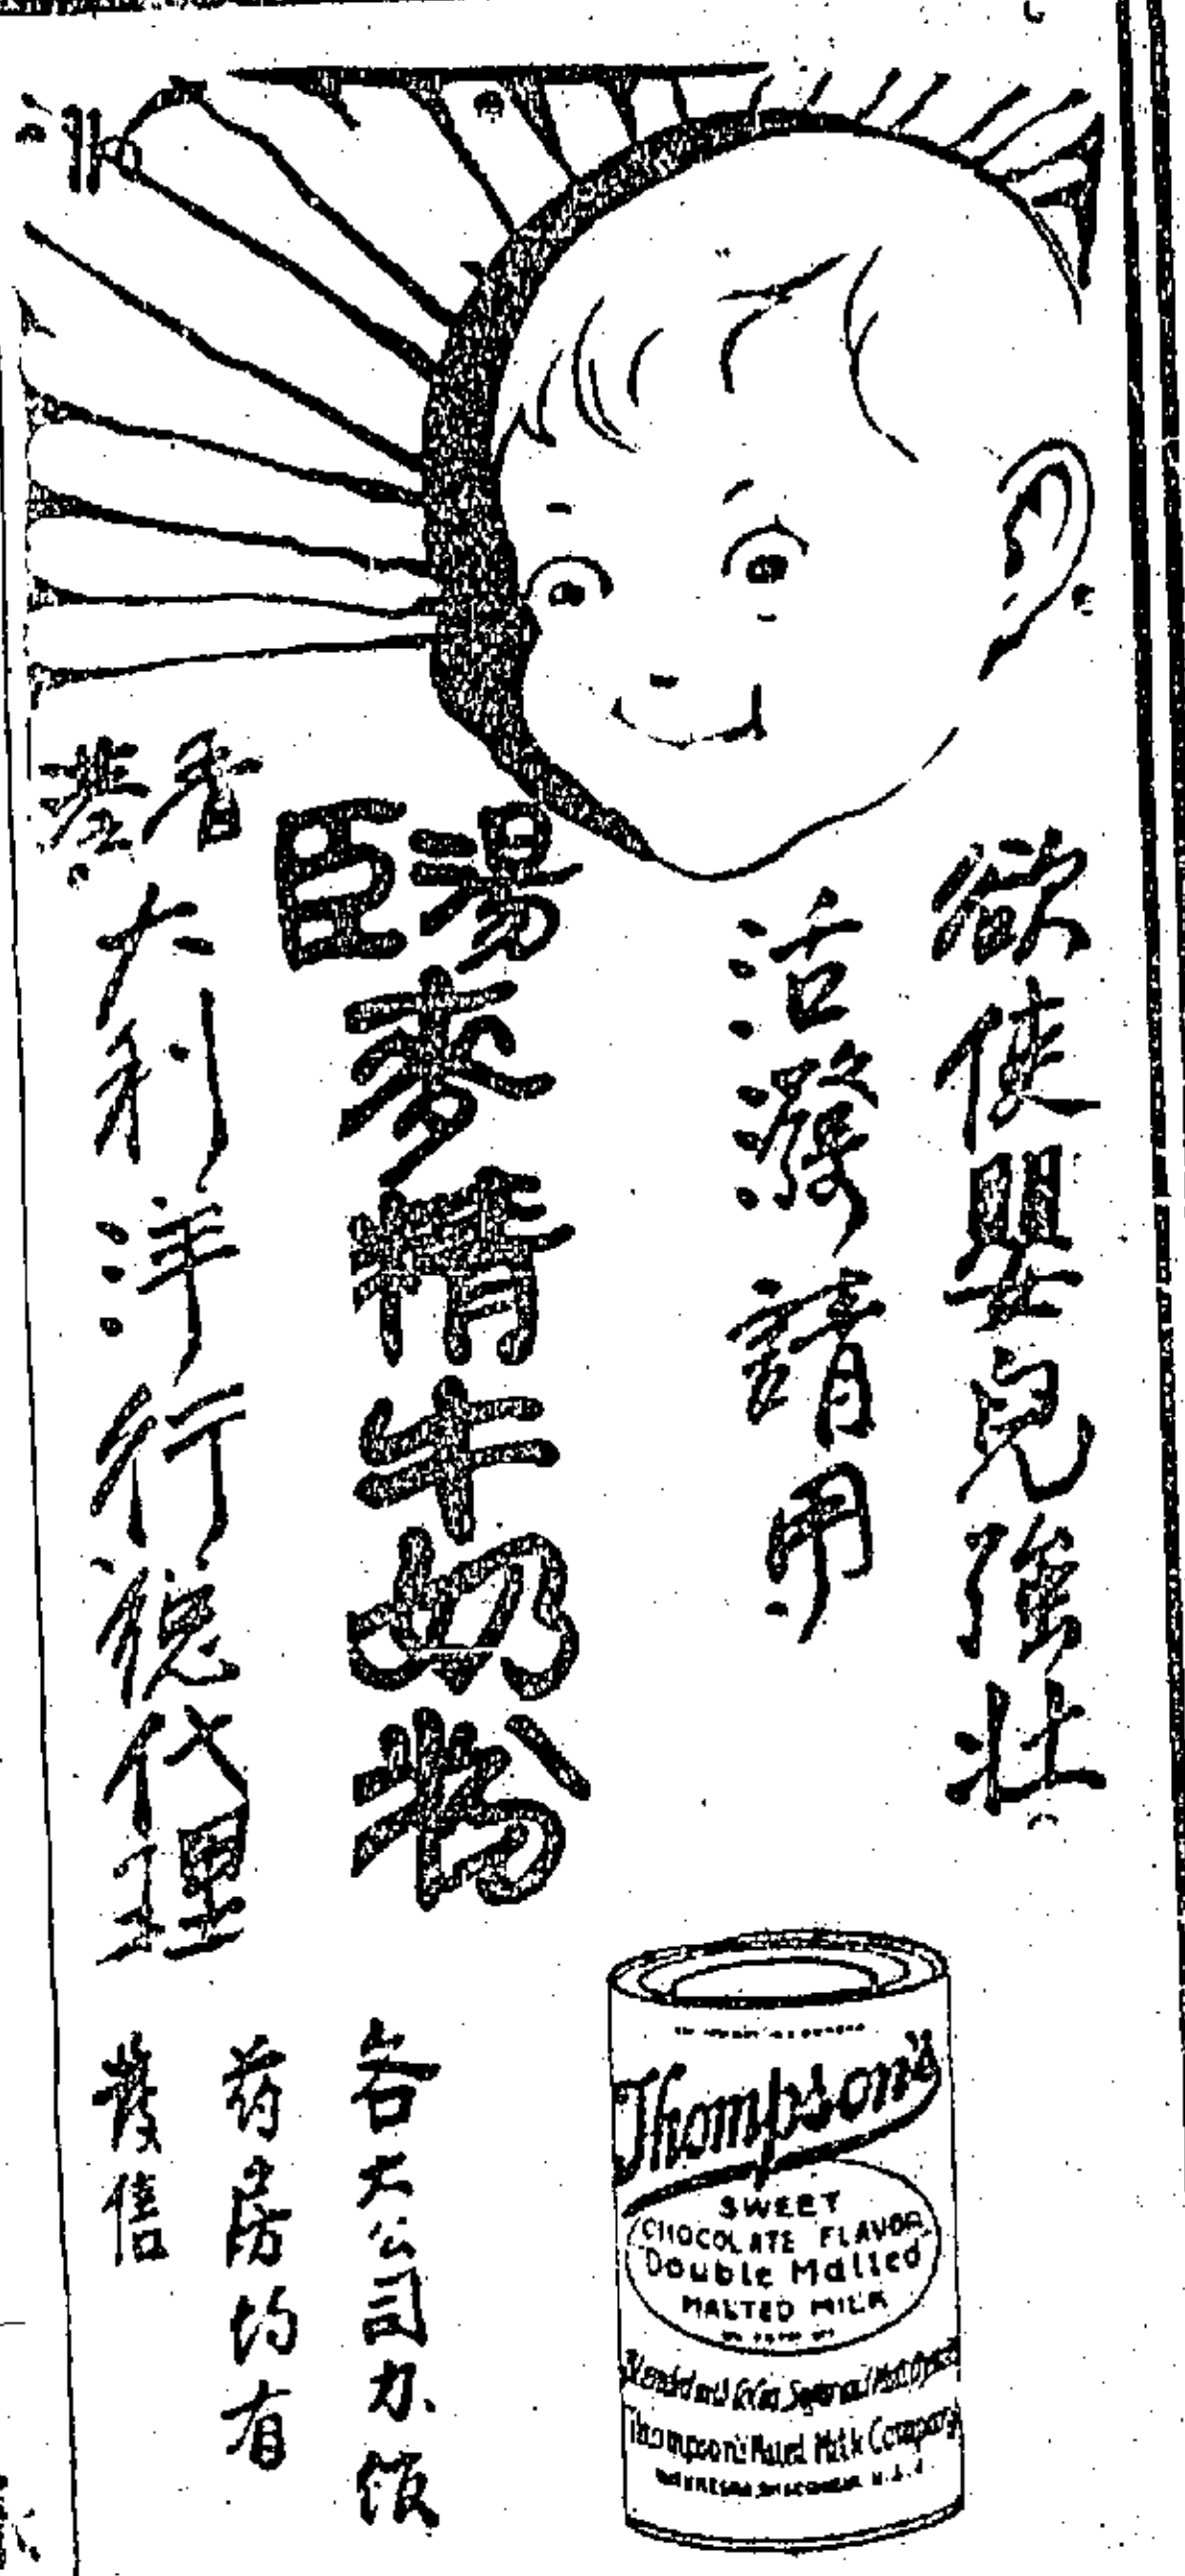 欲使嬰兒強壯
活潑請用
湯臣
麥精牛奶粉
香港
大利洋行總代理
各大公司办舘
药房均有
發售
Thompson's
SWEET
CHOCOLATE FLAVOR
Double Malted
MALTED MILK
Thompson's Malted Milk Company
WAUKESHA, WISCONSIN U.S.A.